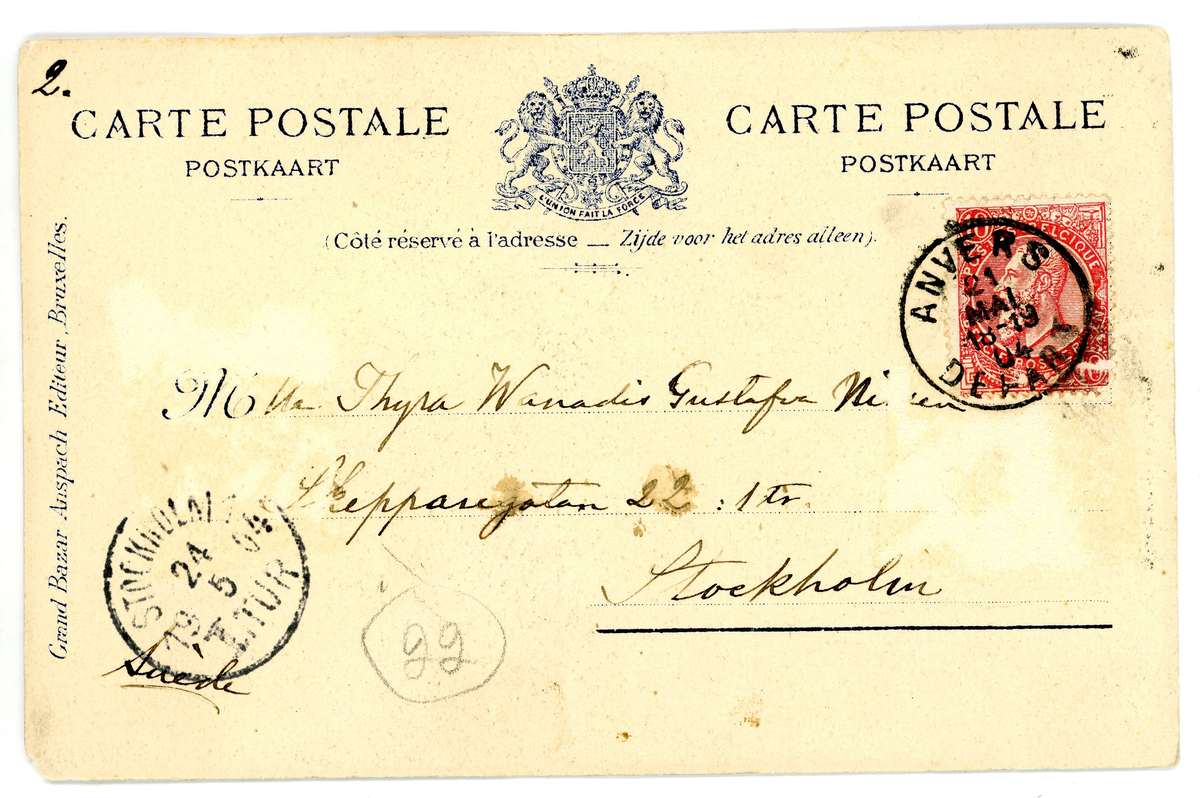 2.
CARTE POSTALE
POSTKAART
CARTE POSTALE
POSTKAART
L'UNION FAIT LA FORCE
(Côté réservé à l'adresse — Zijde voor het adres alleen).
10 BELGIQUE
ANVERS
21
MAI
18-19
04
DEPART
Mlle Thyra Wanadis Gustafva
Skepparegatan 22 : 1 tr.
Stockholm
STOCKHOLM
24
5
04
1.TUR
Suede
22
Grand Bazar Anspach Editeur, Bruxelles.